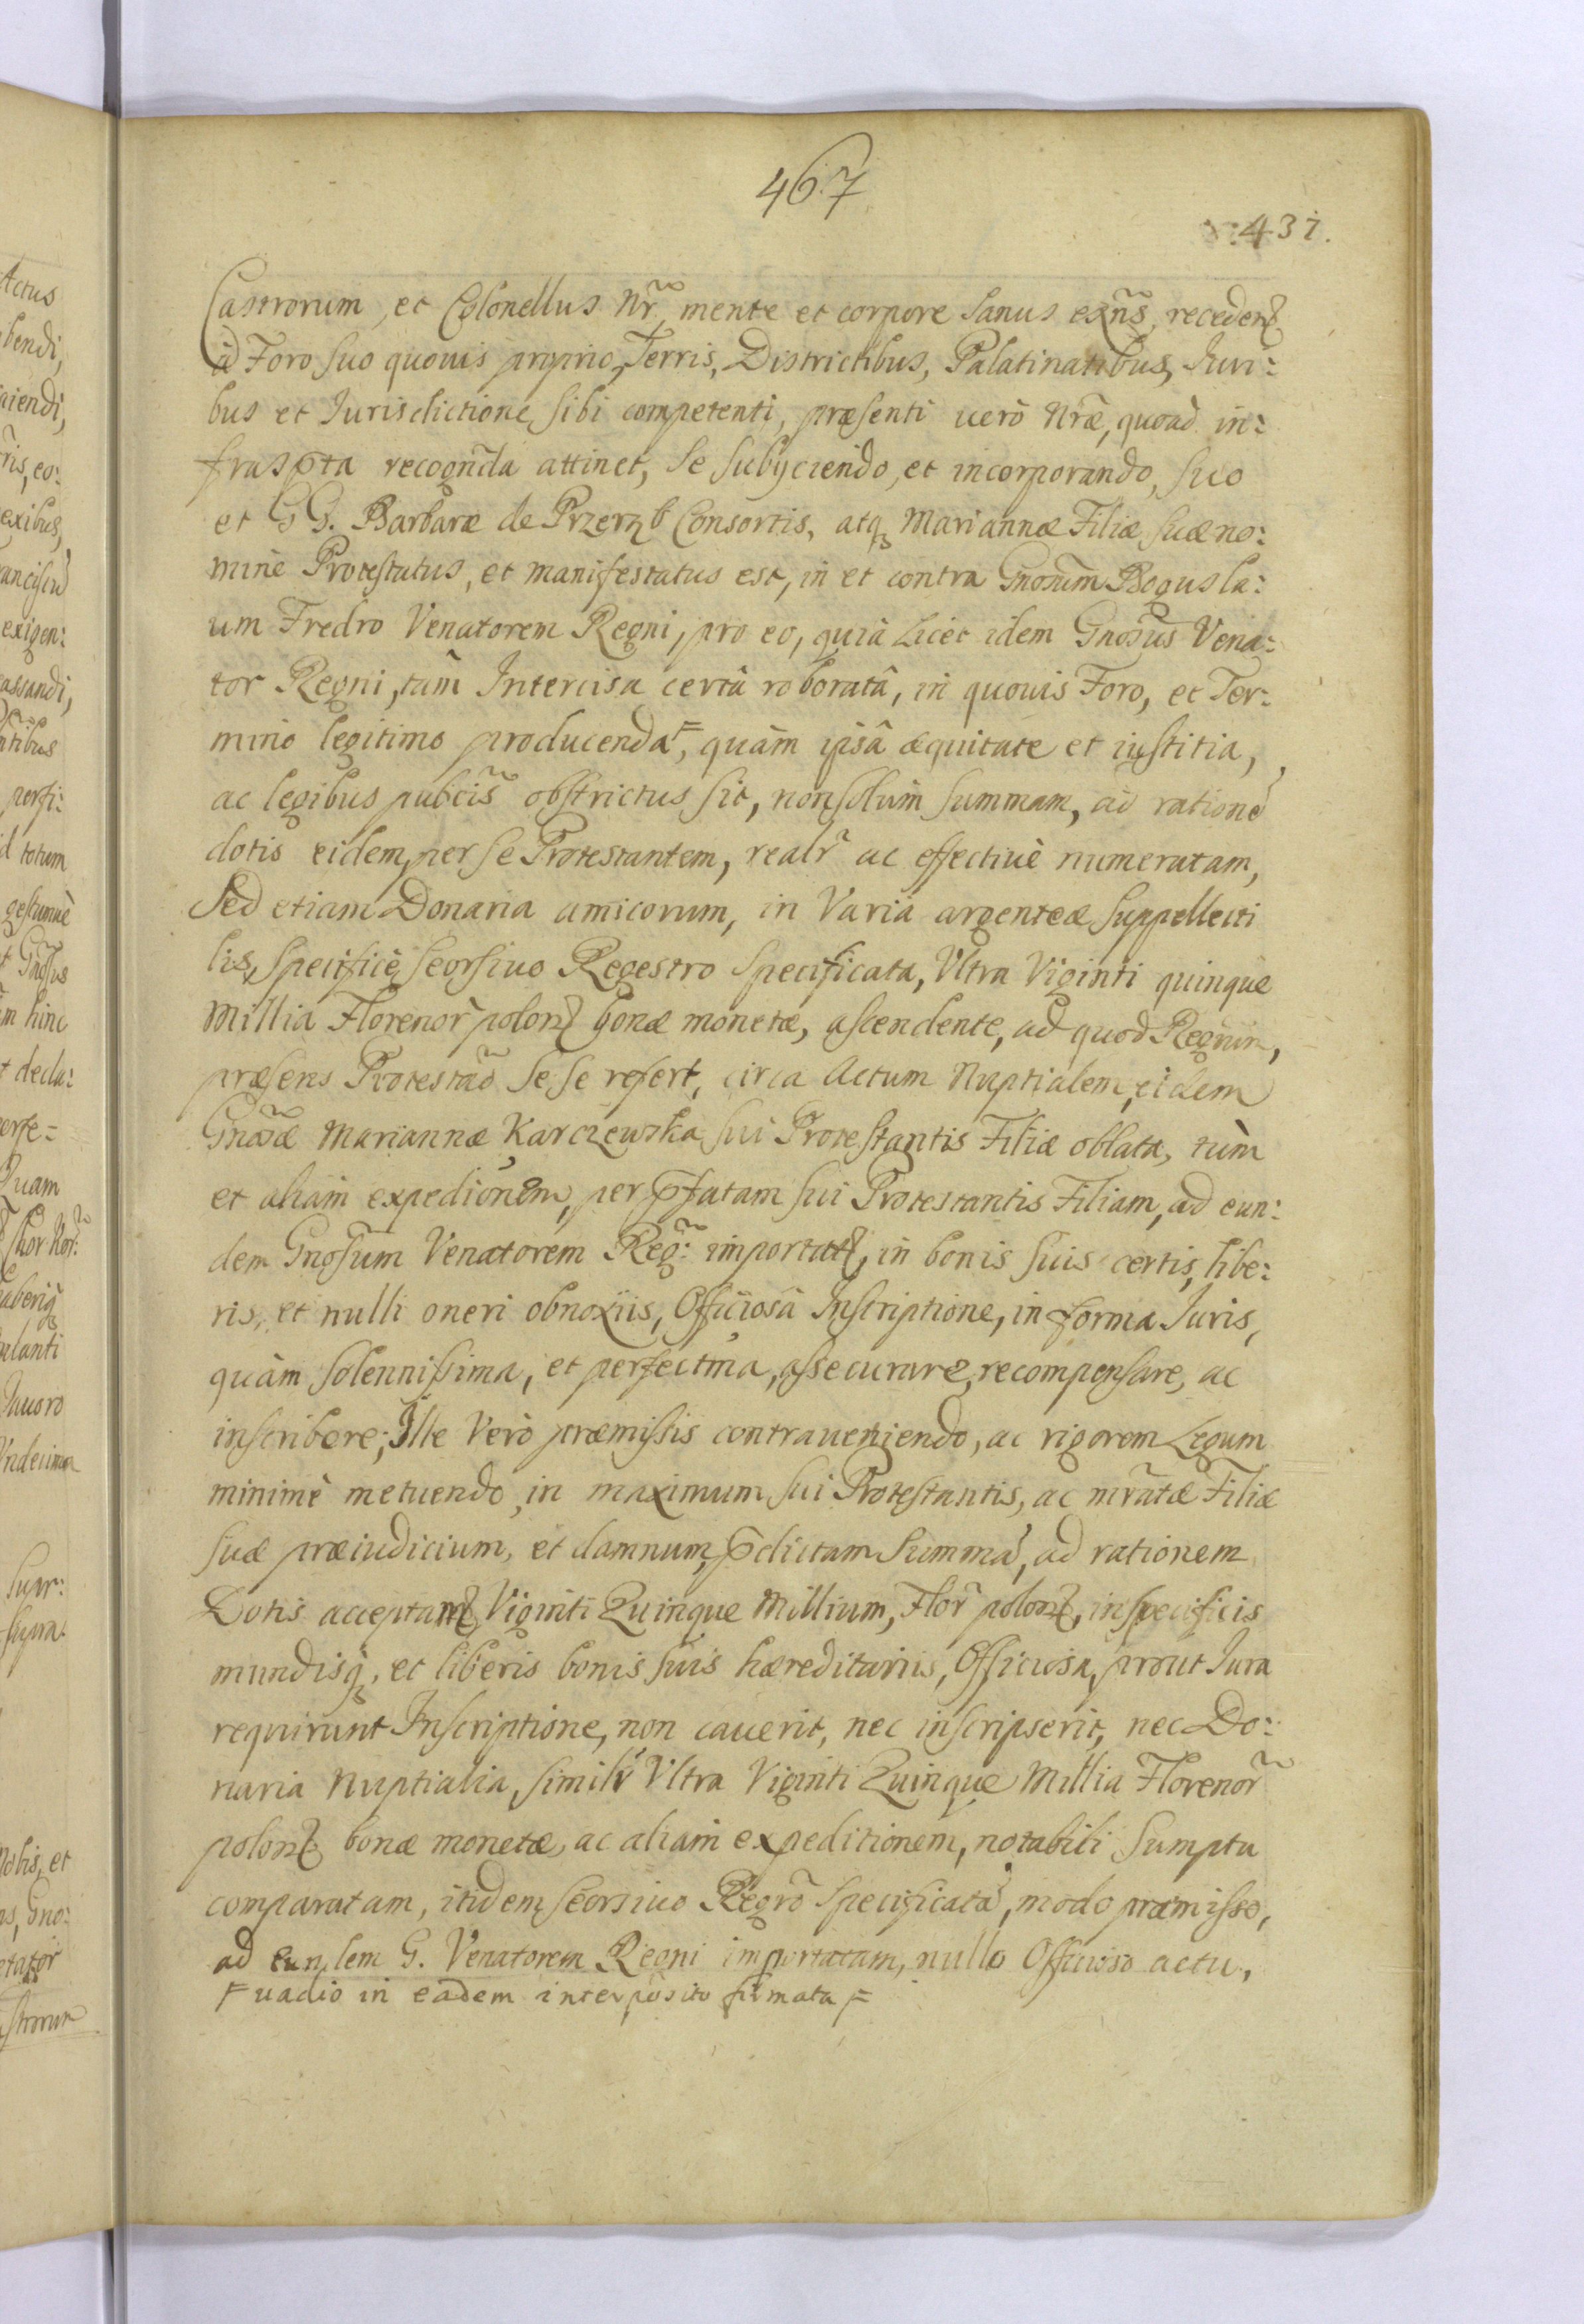 467
437.
Castrorum, et Colonellus Nr̃, mente et corpore sanus exñs, recedenꝫ
à Foro suo quovis proprio, Terris, Districtibus, Palatinatibus, Iuri:
bus et Iurisdictione sibi competenti, præsenti uerò Nr̃æ, quoad in:
frasp̃ta recogñda attinet, se subyciendo, et incorporando, suo
et G G. Barbaræ de Consortis, atq; Mariannæ Filiæ suæ no:
mine Protestatus, et manifestatus est, in et contra Gnosum Bogusla:
um Fredro Venatorem Regni, pro eo, quia Licet idem Gnosus Vena:
tor Regni, tam Intercisa certâ roboratâ, in quouis Foro, et Ter:
mino legitimo producenda ⌜=, quàm ipsâ æquitate et iustitia,
ac legibus pubcis̃ obstrictus sit, non solùm summam, ad rationē
dotis eidem per se Protestantem, realr̃ ac effectiuè numeratam,
Sed etiam Donaria amicorum, in Varia argenteæ suppellecti
lis, specificè seorsiuo Regestro specificata, Vltra Viginti quinque
Millia Florenor̃ polonꝫ bonæ monetæ, ascendente, ad quod Regrum,
præsens Protestãō se se refert, circa Actum Nuptialem, eidem
Gnosæ Mariannæ Karczewska sui Protestantis Filiæ oblata, tùm
et aliam expedionem, per p̃fatam sui Protestantis Filiam, ad eun:
dem Gnosũm Venatorem Reg̃: importatꝫ, in bonis suis certis, libe:
ris, et nulli oneri obnoxiis, Officiosâ Inscriptione, in forma Iuris,
quàm solennissima, et perfectma, assecurare, recompensare, ac
inscribere; Ille Verò præmissis contraueniendo, ac rigorem Legum
minimè metuendo, in maximum sui Protestantis, ac mr̃atæ Filiæ
suæ præiudicium, et damnum, p̃dictam Summā, ad rationem
Dotis acceptamꝫ Viginti Quinque Millium, Flor̃ polonꝫ, in specificis
mundisq;, et liberis bonis suis hæreditariis, Officiosa, prout Iura
requirunt Inscriptione, non cauerit, nec inscripserit, nec Do:
naria Nuptialia, similr̃ Vltra Viginti Quinque Millia Florenor̃
polonꝫ bonæ monetæ, ac aliam expeditionem, notabili Sumptu
comparatam, itidem seorsiuo Regrõ specificatā, modo præmisso,
ad eundem G. Venatorem Regni importatam, nullo Officioso actu,
⌜= uadio in eadem interposito firmata ⌜=